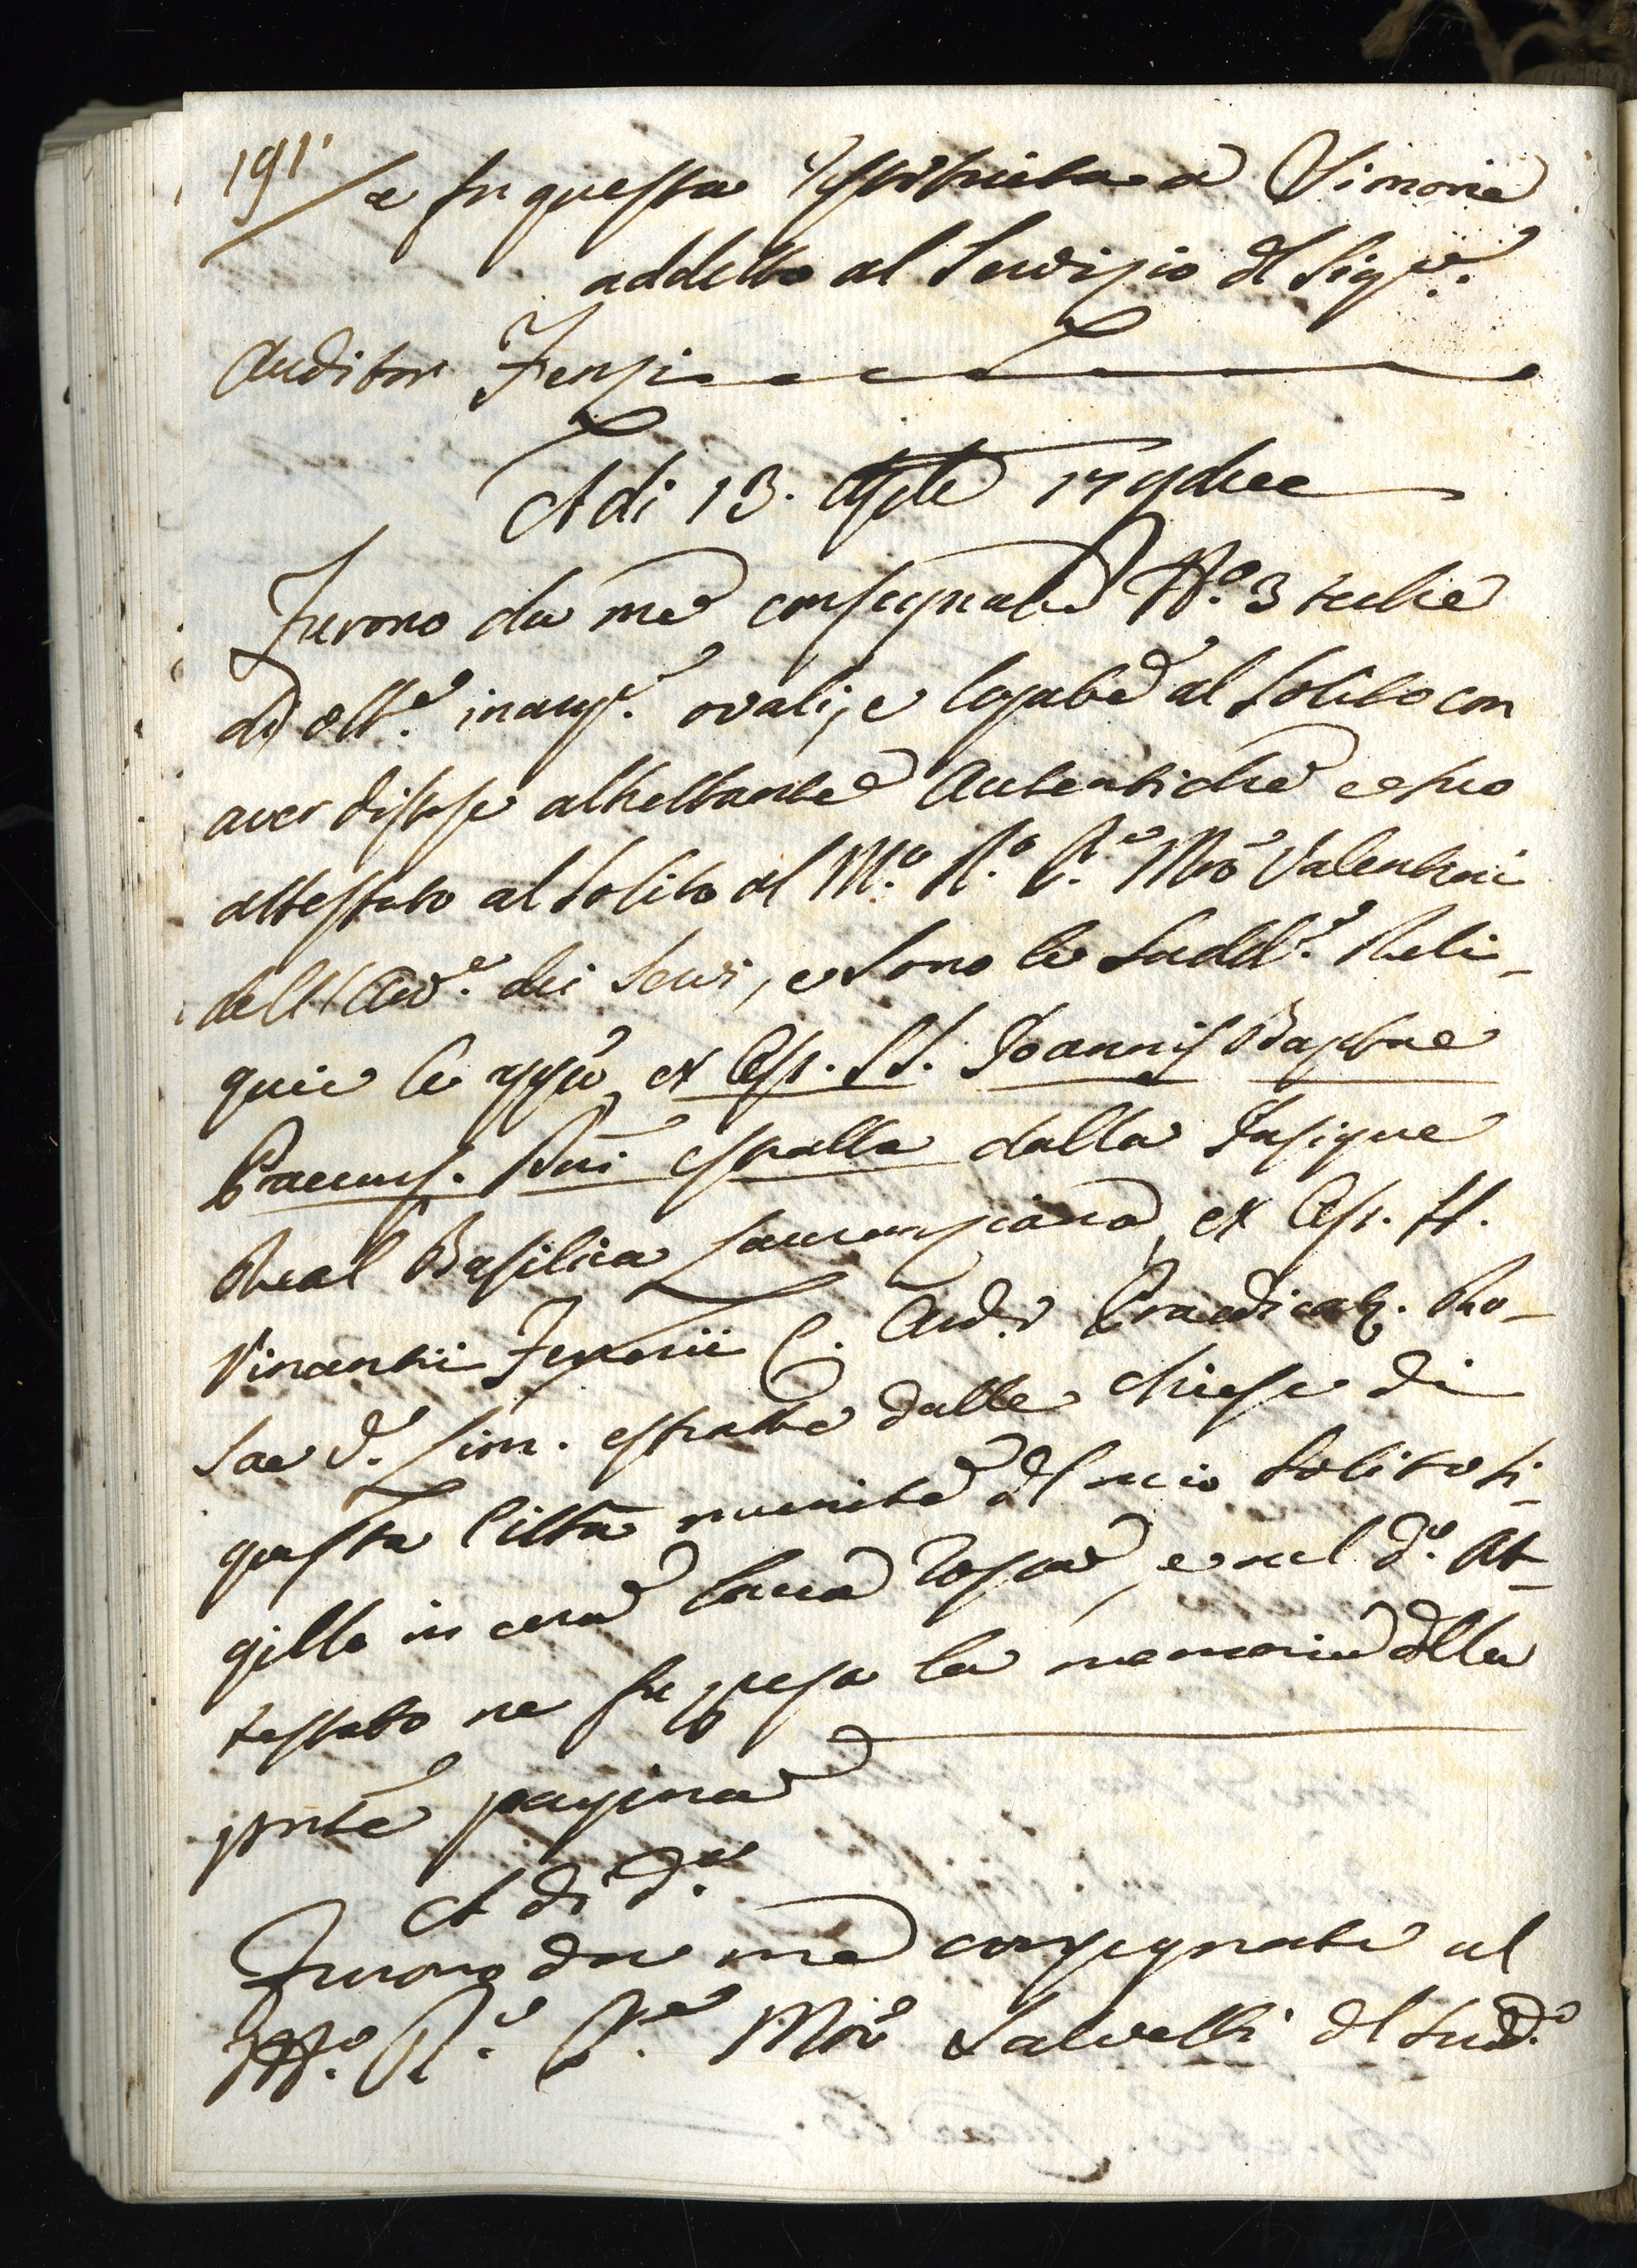 191.
e fu questa restituita a Simone
addetto al Servizio dl Sigre.
Auditor Fenzi
A di 13. Aple 179
Furono da me consegnate No. 3 teche
di ott.e inarg.e ovali, e legate al solito con
aver distese altrettante Autentiche e suo
attestato al solito al M.o R.o P.e Mro Valentini
dell' dei Servi, e sono le sudd.e Reli-
quie le ex Oss. SS. Joannis Baptae
Praecurs. Dni estratta dalla Insigne
Real Basilica Laurenziana, ex Oss. SS.
Vincentii Ferrerii C. Ord. Praedicat. Ro-
sae d. Lim. estratte dalle chiese di
questa Città munite dl mio solito Si-
gillo in cera lacca rossa, e nel d.o At-
testato ne fu presa la memoria dlla
pnte pagina
A di d.o
Furono da me consegnate al
M.o R.o P.e Mro Salvetti dl Sud.o